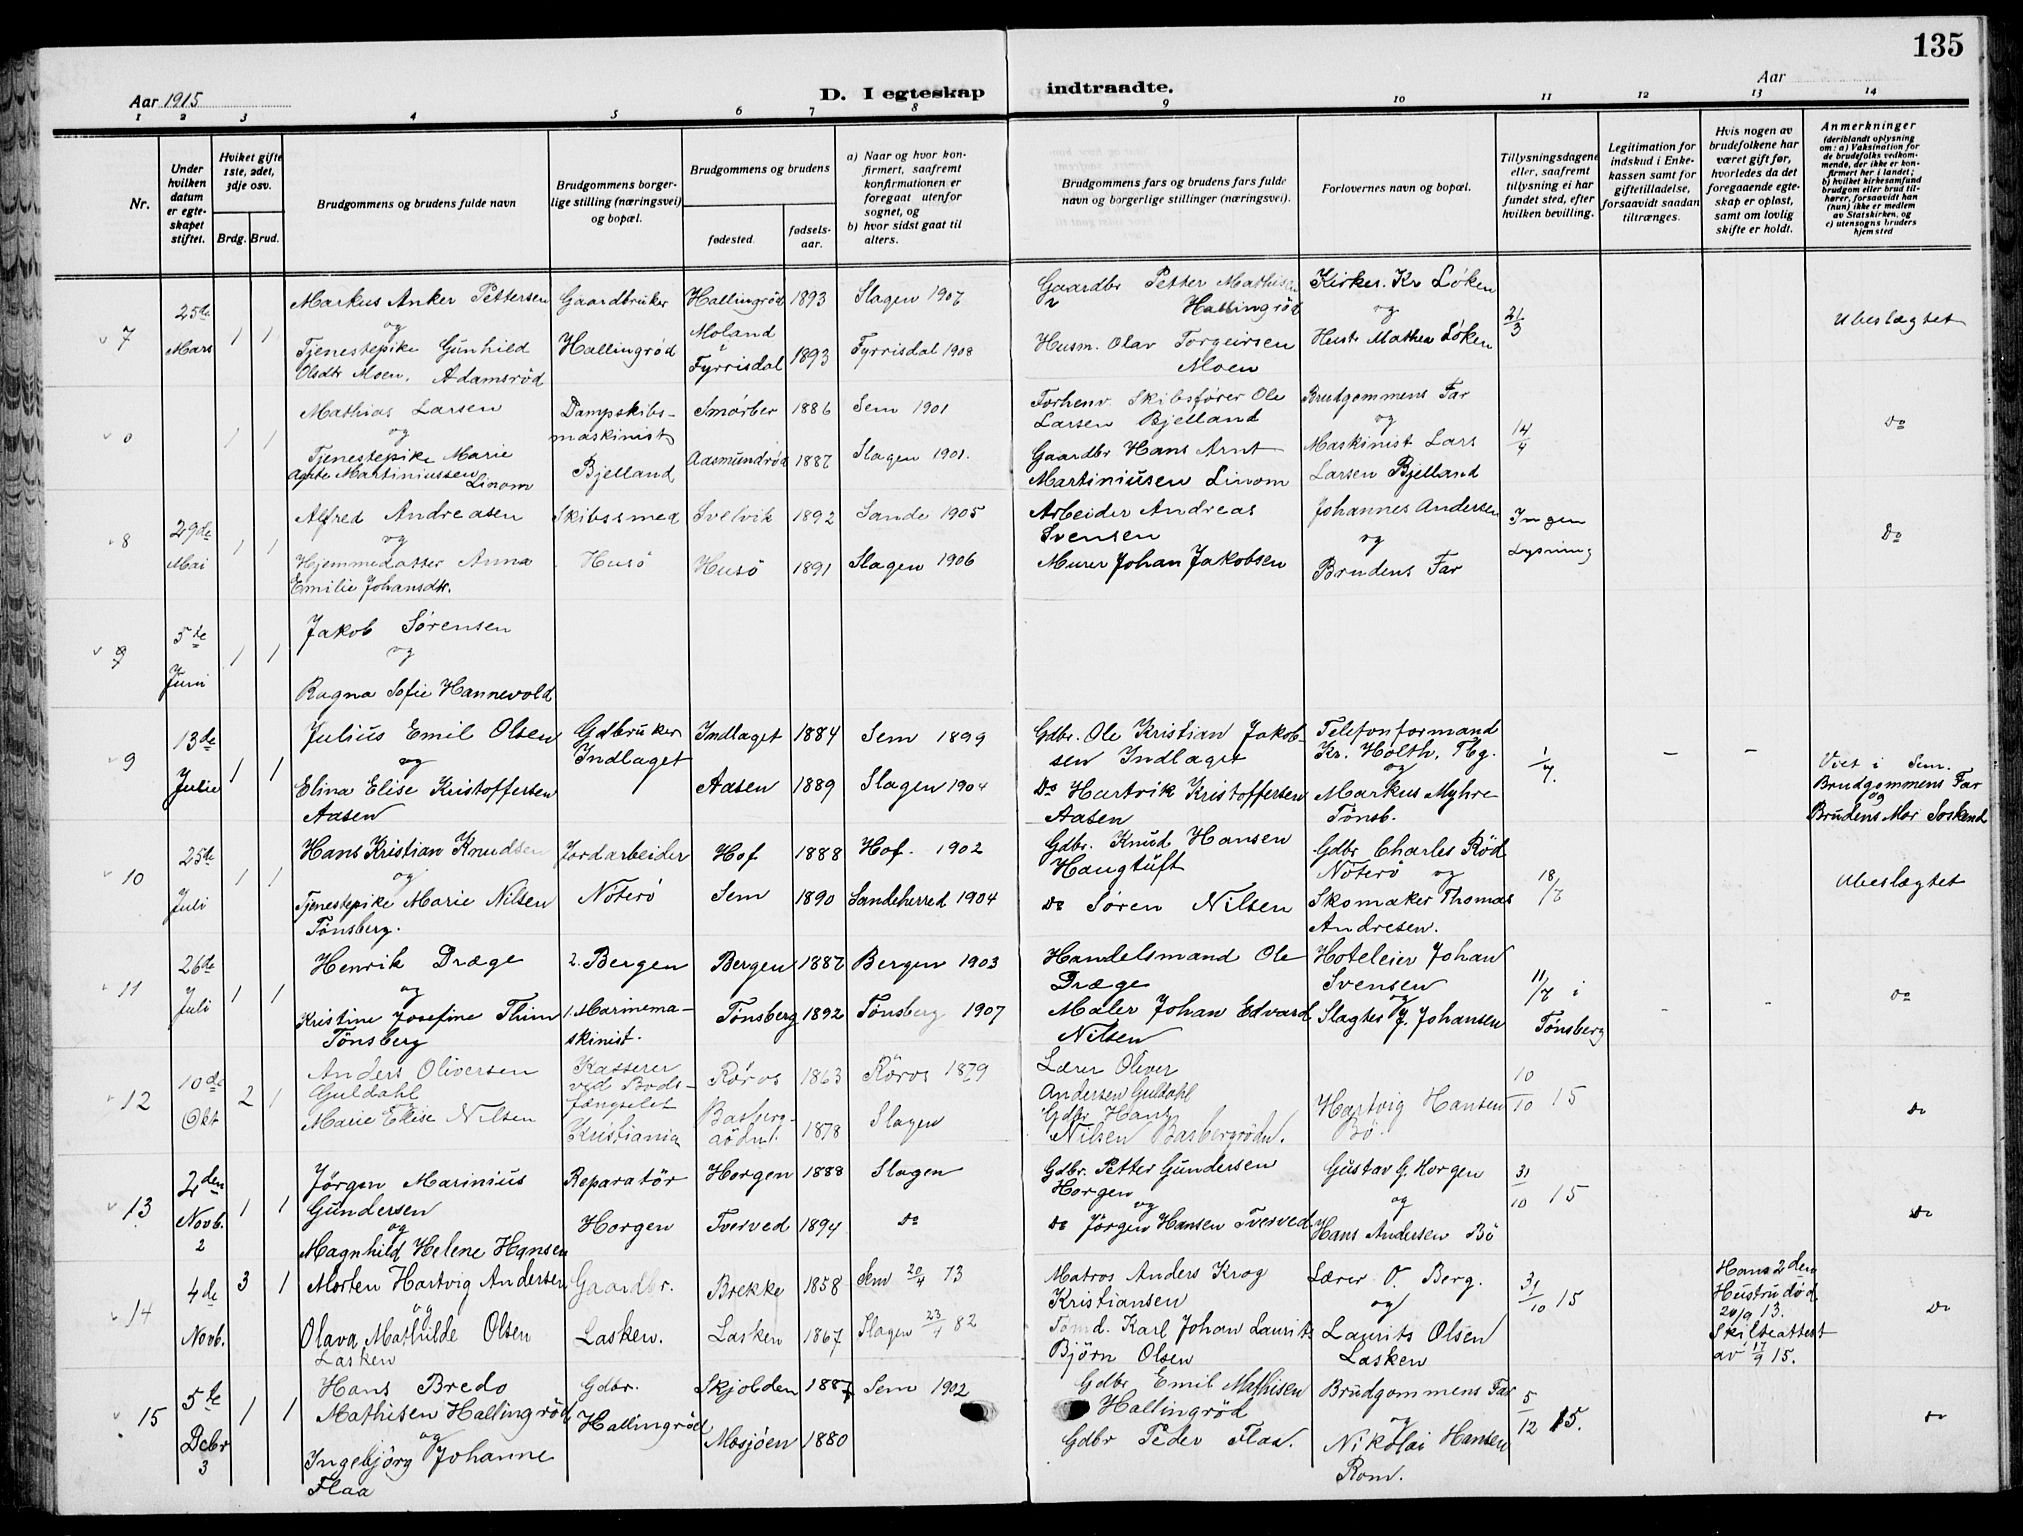 135
Aar 1915
D. I egteskap indtraadte.
Aar
1 2 3 4 5 6 7 8 9 10 11 12 13 14
Nr.
Under hvilken datum er egteskapet stiftet.
Hviket gifte 1ste, 2det, 3dje osv.
Brdg. Brud.
Brudgommens og brudens fulde navn
Brudgommens borgerlige stilling (næringsvei) og bopæl.
Brudgommens og brudens
fødested.
fødselsaar.
a) Naar og hvor konfirmert, saafremt konfirmationen er foregaat utenfor sognet, og
b) hvor sidst gaat til alters.
Brudgommens fars og brudens fars fulde navn og borgerlige stillinger (næringsvei).
Forlovernes navn og bopæl.
Tillysningsdagene eller, saafremt tillysning ei har fundet sted, efter hvilken bevilling.
Legitimation for indskud i Enkekassen samt for giftetilladelse, forsaavidt saadan tiltrænges.
Hvis nogen av brudefolkene har været gift før, hvorledes da det foregaaende egteskap er opløst, samt om lovlig skifte er holdt.
Anmerkninger
(deriblandt oplysning om: a) Vaksination for de brudefolks vedkommende, der ikke er konfirmert her i landet; b) hvilket kirkesamfund brudgom eller brud tilhører, forsaavidt han (hun) ikke er medlem av Statskirken, og c) utensogns bruders hjemsted
7 25de Mars 1 1
Markus Anker Pettersen Gaardbruker Hallingrød 1893 Slagen 1907 Gaardbr Petter Mathisen Kirkes. Kr Løken
og Hallingrød og 21/3 Ubeslægtet
Tjenestepike Gunhild Hallingrød Moland i Fyrrisdal 1893 Fyrrisdal 1908 Husm. Olav Torgeirsen Hustr Mathea Løken
Olsdtr Moen. Adamsrød Moen
Mathias Larsen Dampskibs- Smørber 1886 Sem 1901 Forhenv. Skibsfører Ole Brudgommens Far
1 1 og maskinist Larsen Bjelland og 14/4 Do
Tjenestepike Marie Bjelland Aasmundrød 1887 Slagen 1901. Gaardbr Hans Arnt Maskinist Lars
Agate Martiniussen Linom Martiniusen Linom Larsen Bjelland
8 29de Mai 1 1
Alfred Andreasen Skibssmed Svelvik 1892 Sande 1905 Arbeider Andreas Johannes Andersen Ingen
og Svensen og Lysning Do
Hjemmedatter Anna Husø Husø 1891 Slagen 1906 Murer Johan Jakobsen Brudens Far
Emilie Johansdtr.
9 5te Juni 1 1
Jakob Sørensen
og
Ragna Sofie Hannevold
9 13de Julie 1 1
Julius Emil Olsen Gdbruker Indlaget 1884 Sem 1899 Gdbr. Ole Kristian Jakob- Telefonformand
og Indlaget sen Indlaget Kr. Holth. Tbg. 1/7. – –
Elina Elise Kristoffersen Aasen 1889 Slagen 1904 Do Hartvik Kristoffersen og Markus Myhre Viet i Sem. Brudgommens Far
Aasen Aasen Tønsb. og Brudens Mor Søskend
10 25de Juli 1 1
Hans Kristian Knudsen Jordarbeider Hof 1888 Hof. 1902 Gdbr. Knud Hansen Gdbr Charles Rød
og Nøterø Haugtuft Nøterø og 18/7 Ubeslægtet
Tjenestepike Marie Nilsen Sem 1890 Sandeherred 1904 Do Søren Nilsen Skomaker Thomas
Tønsberg. Andresen.
11 26de Juli 1 1
Henrik Dræge 2. Bergen Bergen 1887 Bergen 1903 Handelsmand Ole Hoteleier Johan
og Dræge Svensen 11/7 i Do
Kristine Josefine Thim 1. Marinema- Tønsberg 1892 Tønsberg 1907 Maler Johan Edvard og Slagter J. Johansen Tønsberg
Tønsberg skinist. Nilsen
12 10de Okt 2 1
Anders Oliversen Kasserer Røros 1863 Røros 1879 Lærer Oliver
Guldahl ved Bods- Andersen Guldahl 10/10 15 Do
og fængselet Gdbr Hans Hartvig Hansen
Marie Elise Nilsen Kristiania 1878 Slagen Nilsen Basbergrødn. Bø.
13 2den Novb. 2 1 1
Jørgen Marinius Reparatør Horgen 1888 Slagen Gdbr. Petter Gundersen Gustav G. Horgen
Gundersen Horgen og 31/10 15 Do
og Horgen og
Magnhild Helene Hansen Tverved 1894 Do Do Jørgen Hansen Tverved Hans Andersen Bø
14 4de Novb. 3 1
Morten Hartvig Andersen Gaardbr. Brekke 1858 Sem 20/4 73 Matros Anders Krog Lærer O. Berg. Hans 2den
og Kristiansen og 31/10 15 Hustru død
Olava Mathilde Olsen Lasken. Lasken 1867 Slagen 82 Tømd. Karl Johan Laurits Laurits Olsen 13. Do
Lasken Bjørn Olsen Lasken Skifteattest
av 17/9 15.
15 5te Dcbr 3 1 1
Hans Bredo Gdbr. Skjolden 1887 Sem 1902 Gdbr Emil Mathisen Brudgommens Far
Mathisen Hallingrød Hallingrød Hallingrød og 5/12 15. Do
og Mosjøen 1880 Gdbr Peder Flaa. Nikolai Hansen
Ingebjørg Johanne Rom.
Flaa